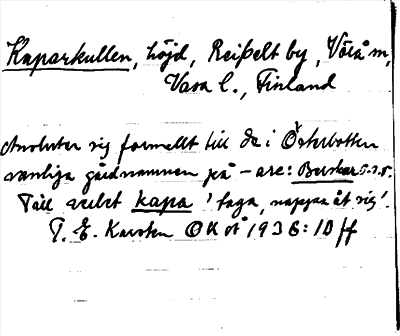 Kaparkullen, höjd, Reipelt by, Vörå sn,
Vasa l., Finland
Ansluter sig formellt till de i Österbotten
vanliga gårdnamnen på -are: Berskar o.s.v.
Till verbet kapa 'taga, nappa åt sig'.
T. E. Karsten OUÅ 1936: 10 ff